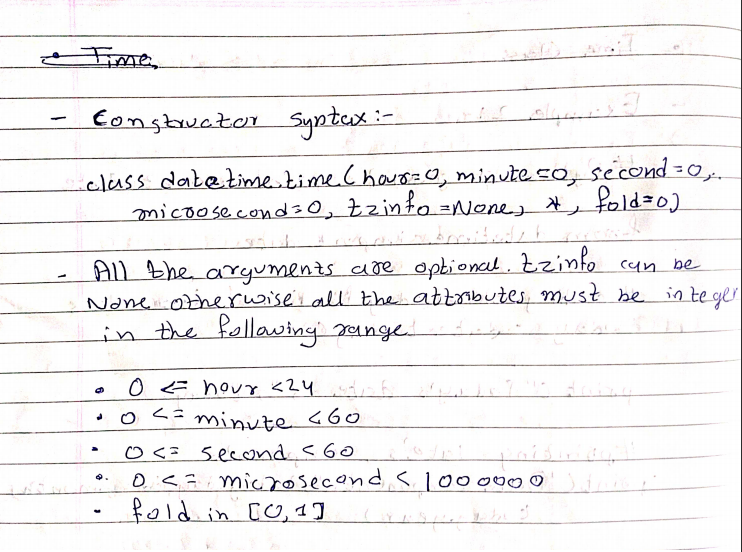 • Time
- Constructor Syntax :-
class datetime.time (hour=0, minute=0, second=0,
microsecond=0, tzinfo=None, *, fold=0)
- All the arguments are optional. tzinfo can be
None otherwise all the attributes must be integer
in the following range
• 0 <= hour <24
• 0 <= minute <60
• 0 <= second <60
• 0 <= microsecond < 1000000
- fold in [0,1]